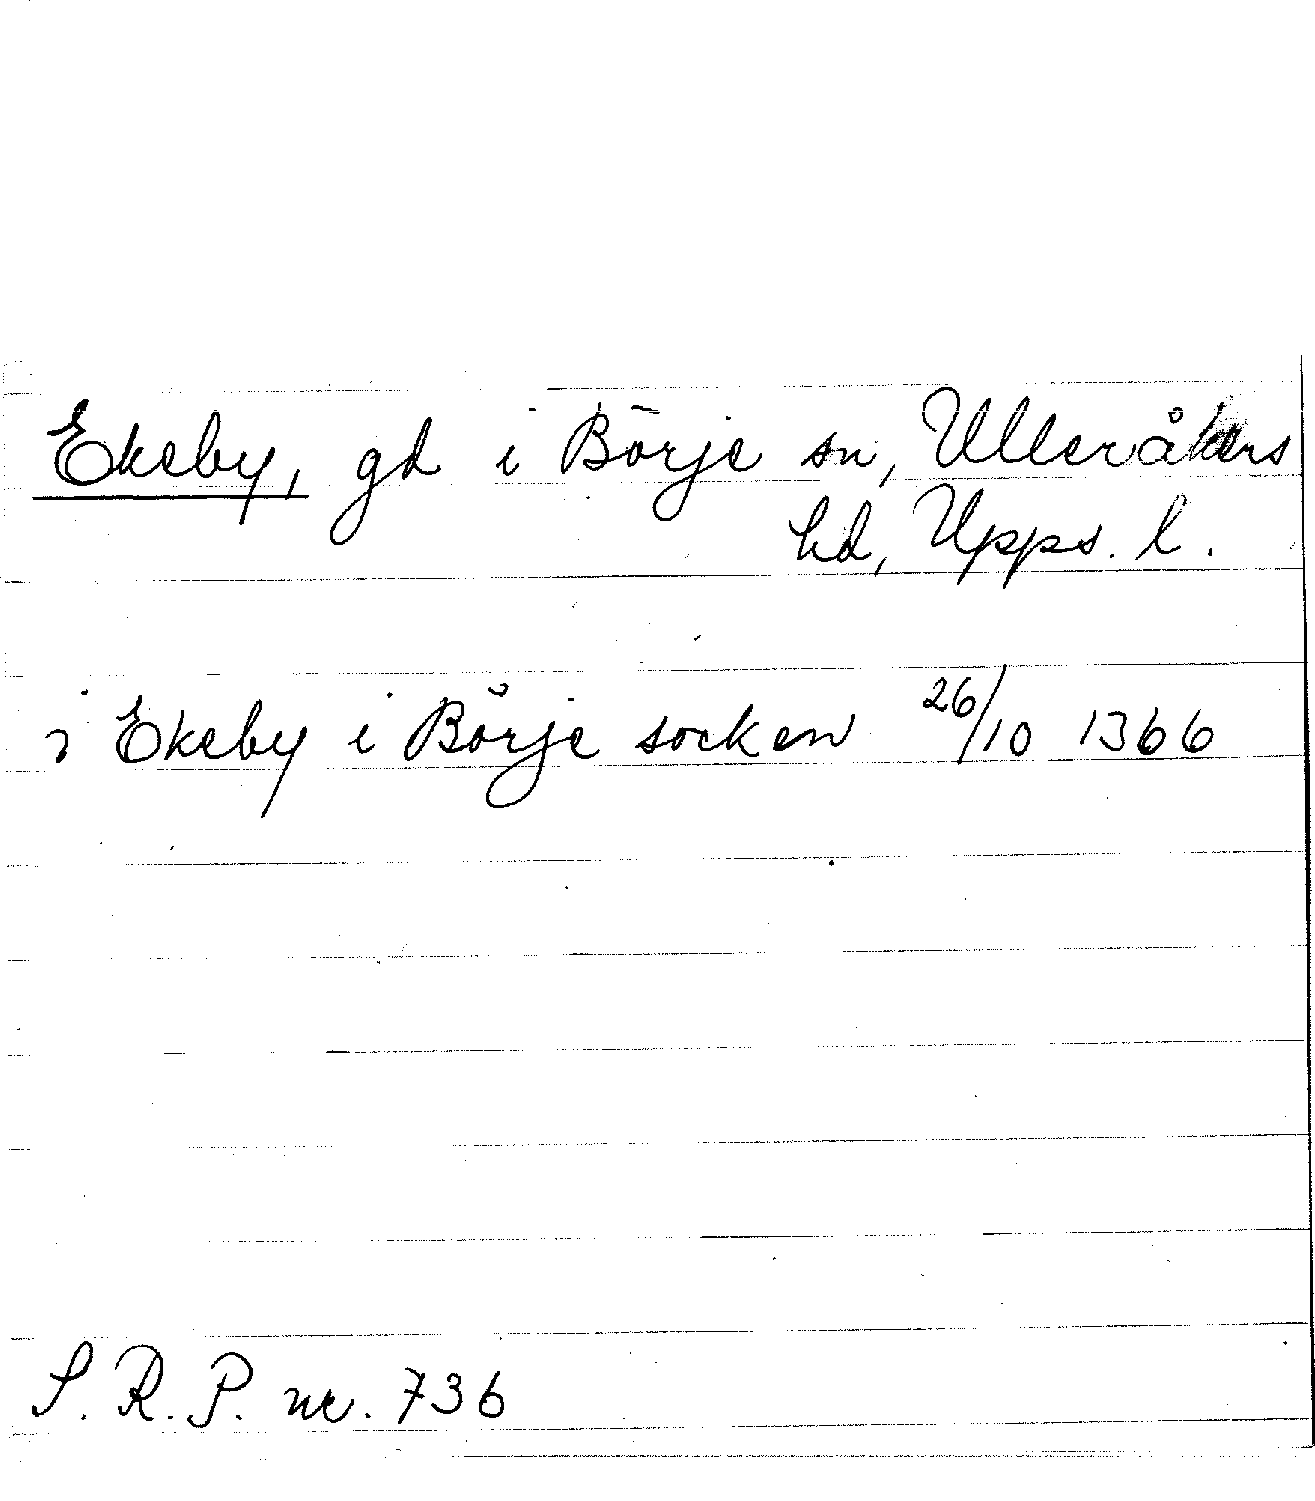 Ekeby, gd i Börje sn, Ulleråkers
hd, Upps. l.
i Ekeby i Börje socken 26/10 1366
S. R. P. nr. 736